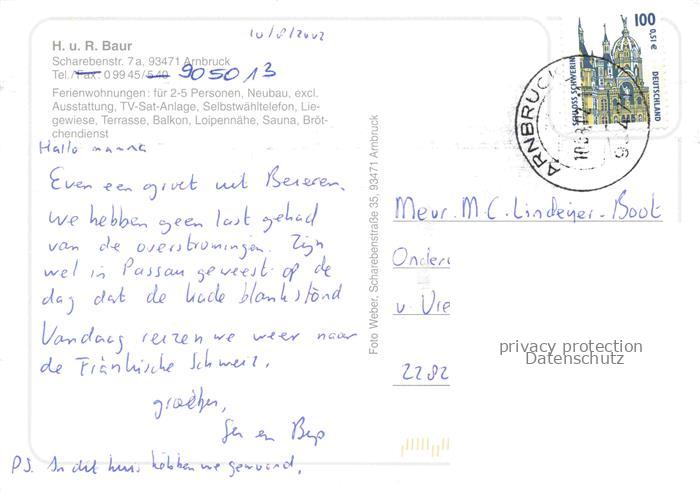 10/8/2002
H. u. R. Baur
Scharebenstr. 7a, 93471 Arnbruck
Tel./Fax: 0 99 45/5 40 905013
Ferienwohnungen: für 2-5 Personen, Neubau, excl.
Ausstattung, TV-Sat-Anlage, Selbstwähltelefon, Lie-
gewiese, Terrasse, Balkon, Loipennähe, Sauna, Bröt-
chendienst
Hallo mamma
Even een groet uit Beieren.
We hebben geen last gehad
van de overstromingen. Zijn
wel in Passau geweest op de
dag dat de kade blank stond
Vandaag reizen we weer naar
de Fränkische Schweiz.
groetjes,
en Bep
PS. In dit huis hebben we gewoond.
Foto Weber, Scharebenstraße 35, 93471 Arnbruck
100
0,51 €
SCHLOSS SCHWERIN
DEUTSCHLAND
ARNBRUCK
Mevr. M. C. Lindeijer-Boot
Onder
v. Vre
2282
privacy protection
Datenschutz